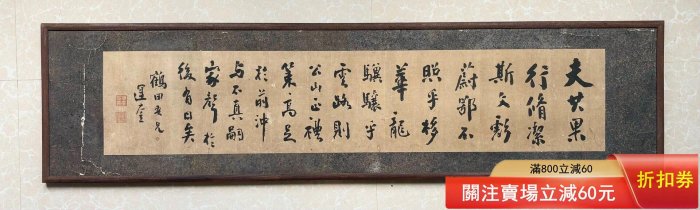 夫其果
行脩潔
斯文彰
蔚鄂不
照乎棣
華龍
驥驤乎
雲路則
公山正禮
策高足
於前沖
與不真嗣
家聲於
後有日矣
鶴田 兄
滿800立減60
關注賣場立減60元
折扣券